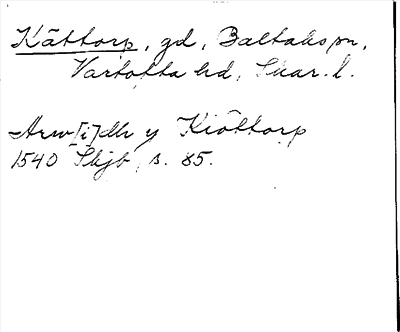 Kättorp, gd, Baltaks sn,
Vartofta hd, Skar. l.
Arw[i]dh y Kiöttorp
1540 Skjb, s. 85.